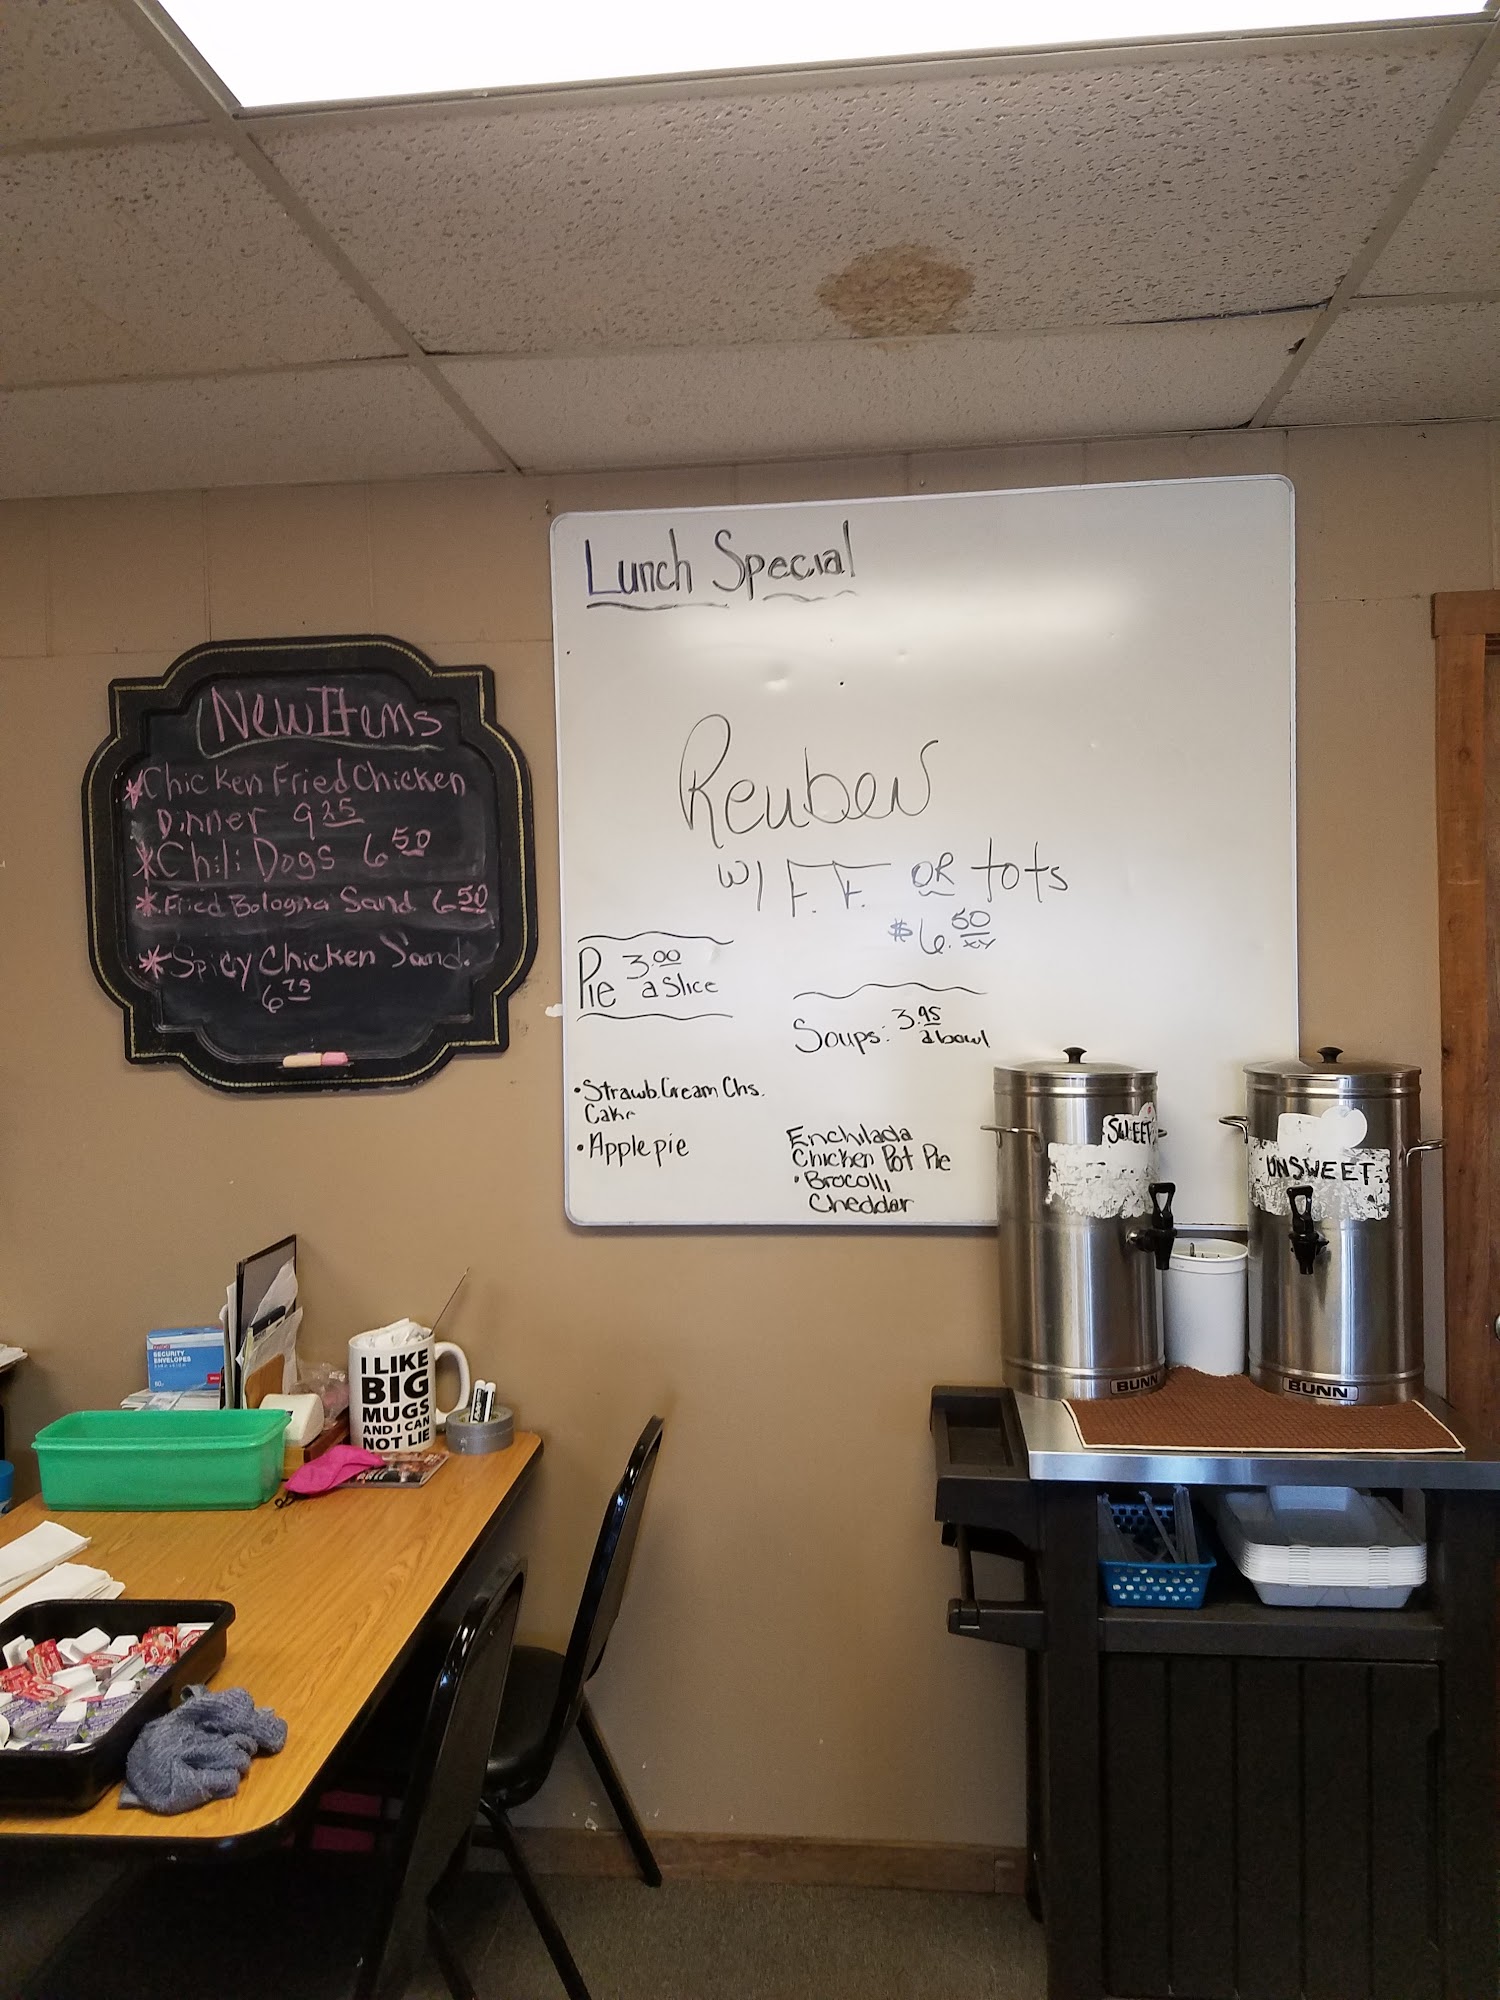 Lunch Special
Reuben
w/ F.F. OR tots
$6.50
Pie 3.00
a Slice
• Strawb. Cream Chs.
Cake
• Apple pie
Soups: 3.95
a bowl
Enchilada
Chicken Pot Pie
• Brocolli
Cheddar
New Items
* Chicken Fried Chicken
Dinner
* Chili Dogs 6 50
* Fried Bologna Sand. 6 50
* Spicy Chicken Sand.
6 75
SWEET
UNSWEET
BUNN
BUNN
SECURITY
ENVELOPES
I LIKE
BIG
MUGS
AND I CAN
NOT LIE